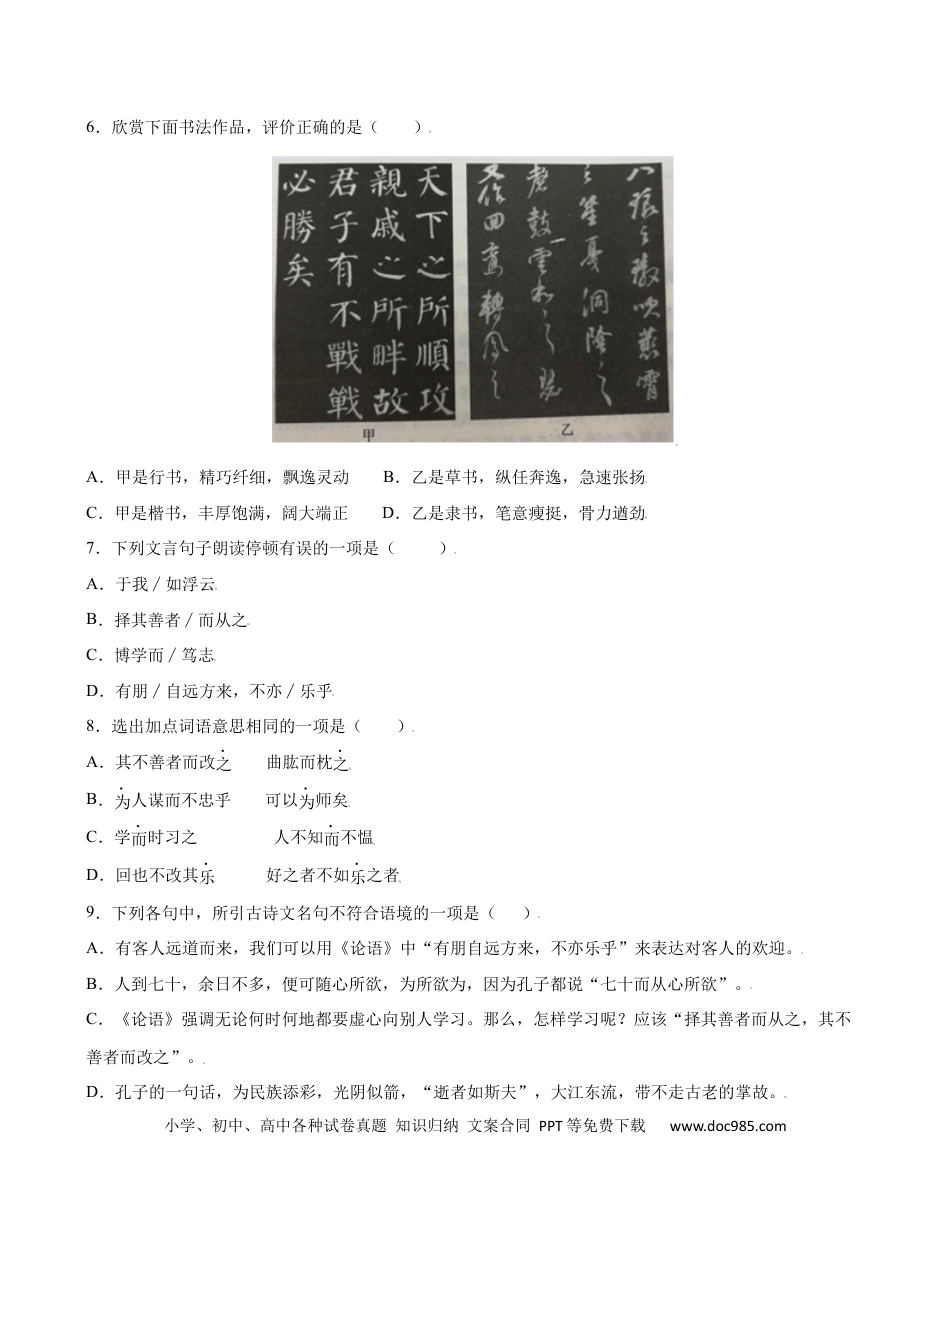 6．欣赏下面书法作品，评价正确的是（　　）
天下之所順攻
親戚之所畔故
君子有不戰戰
必勝矣
甲
八琅之璈吹慕霄
之笙戛洞陰之
磬鼓雲和之瑟
又作回鸞轉鳳之
乙
A．甲是行书，精巧纤细，飘逸灵动　　B．乙是草书，纵任奔逸，急速张扬
C．甲是楷书，丰厚饱满，阔大端正　　D．乙是隶书，笔意瘦挺，骨力遒劲
7．下列文言句子朗读停顿有误的一项是（　　）
A．于我／如浮云
B．择其善者／而从之
C．博学而／笃志
D．有朋／自远方来，不亦／乐乎
8．选出加点词语意思相同的一项是（　　）
A．其不善者而改之　　曲肱而枕之
B．为人谋而不忠乎　　可以为师矣
C．学而时习之　　人不知而不愠
D．回也不改其乐　　好之者不如乐之者
9．下列各句中，所引古诗文名句不符合语境的一项是（　　）
A．有客人远道而来，我们可以用《论语》中“有朋自远方来，不亦乐乎”来表达对客人的欢迎。
B．人到七十，余日不多，便可随心所欲，为所欲为，因为孔子都说“七十而从心所欲”。
C．《论语》强调无论何时何地都要虚心向别人学习。那么，怎样学习呢？应该“择其善者而从之，其不
善者而改之”。
D．孔子的一句话，为民族添彩，光阴似箭，“逝者如斯夫”，大江东流，带不走古老的掌故。
小学、初中、高中各种试卷真题 知识归纳 文案合同 PPT等免费下载　www.doc985.com